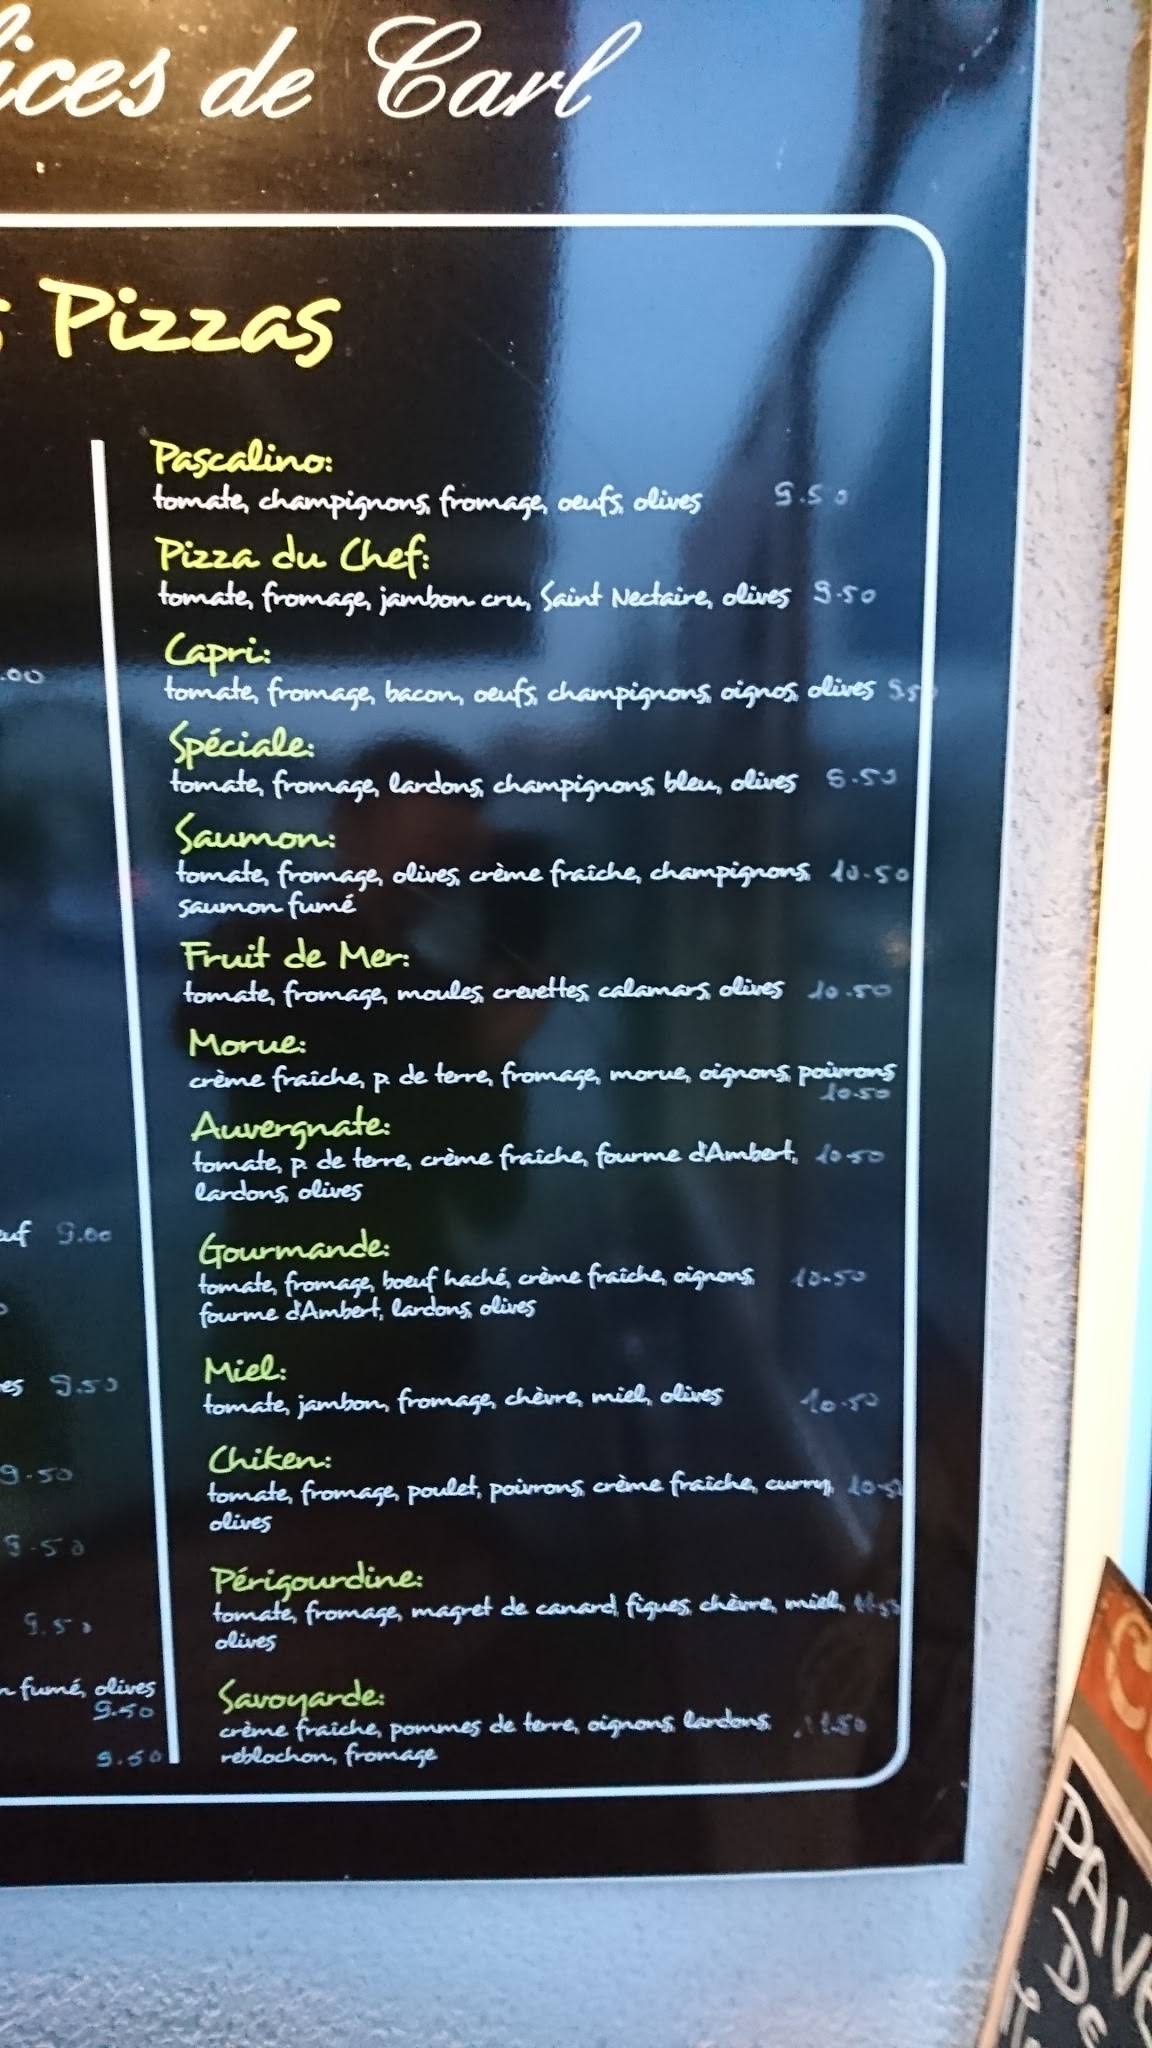 de Carl
Pizzas
Pascalino:
tomate, champignons, fromage, oeufs, olives 9.50
Pizza du Chef:
tomate, fromage, jambon cru, Saint Nectaire, olives 9.50
Capri:
tomate, fromage, bacon, oeufs, champignons, oignos, olives 9.50
Spéciale:
tomate, fromage, lardons, champignons, bleu, olives 9.50
Saumon:
tomate, fromage, olives, crème fraîche, champignons, 10.50
saumon fumé
Fruit de Mer:
tomate, fromage, moules, crevettes, calamars, olives 10.50
Morue:
crème fraîche, p. de terre, fromage, morue, oignons, poivrons
10.50
Auvergnate:
tomate, p. de terre, crème fraîche, fourme d'Ambert, 10.50
lardons, olives
Gourmande:
tomate, fromage, boeuf haché, crème fraîche, oignons, 10.50
fourme d'Ambert, lardons, olives
Miel:
tomate, jambon, fromage, chèvre, miel, olives 10.50
Chiken:
tomate, fromage, poulet, poivrons, crème fraîche, curry, 10.50
olives
Périgourdine:
tomate, fromage, magret de canard, figues, chèvre, miel, 11.50
olives
Savoyarde:
crème fraîche, pommes de terre, oignons, lardons, 11.50
reblochon, fromage
.00
9.00
9.50
9.50
9.50
9.50
fumé, olives
9.50
9.50
DE